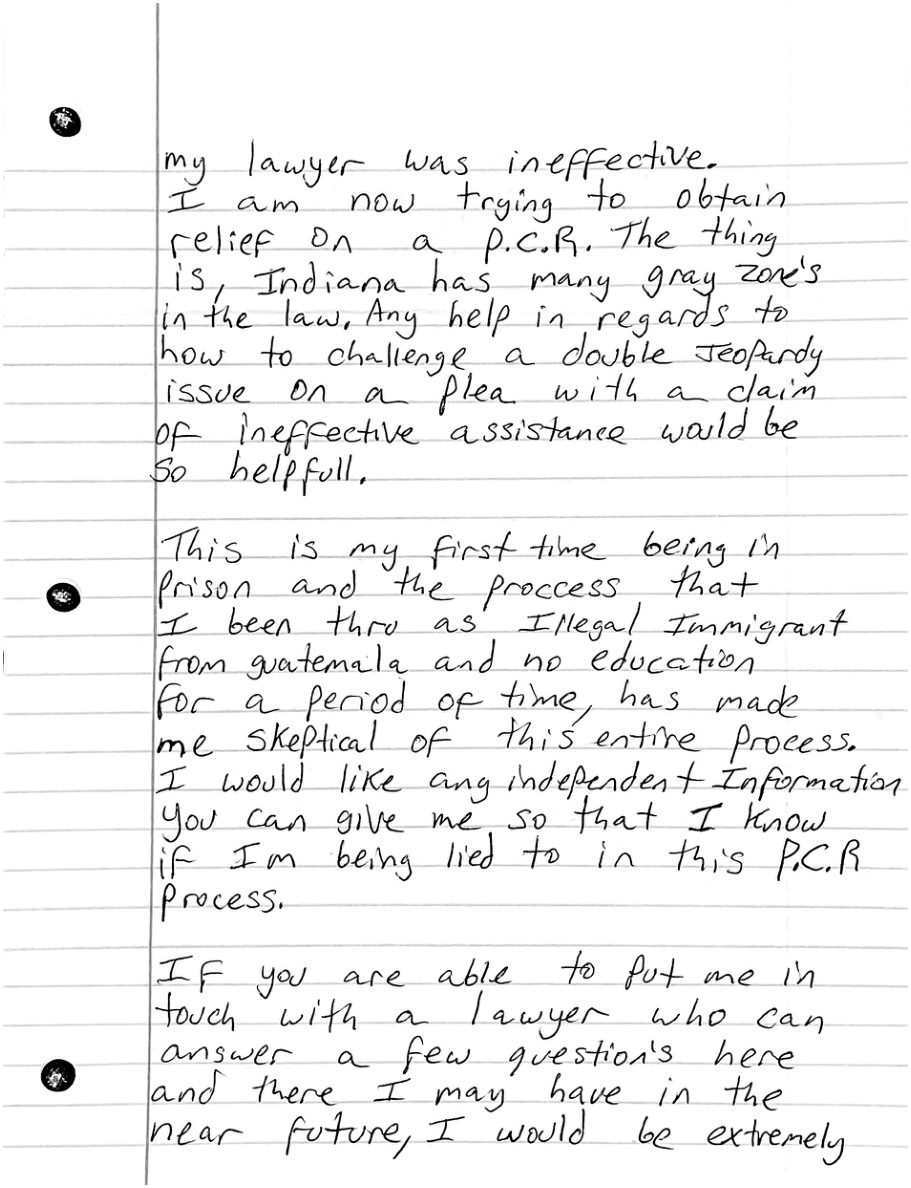 my lawyer was ineffective.
I am now trying to obtain
relief on a P.C.R. The thing
is, Indiana has many gray zone's
in the law. Any help in regards to
how to challenge a double Jeopardy
issue on a plea with a claim
of ineffective assistance would be
so helpfull.
This is my first time being in
prison and the proccess that
I been thru as Illegal Immigrant
from guatemala and no education
for a period of time, has made
me skeptical of this entire process.
I would like any independent Information
you can give me so that I know
if Im being lied to in this P.C.R
process.
If you are able to put me in
touch with a lawyer who can
answer a few question's here
and there I may have in the
near future, I would be extremely